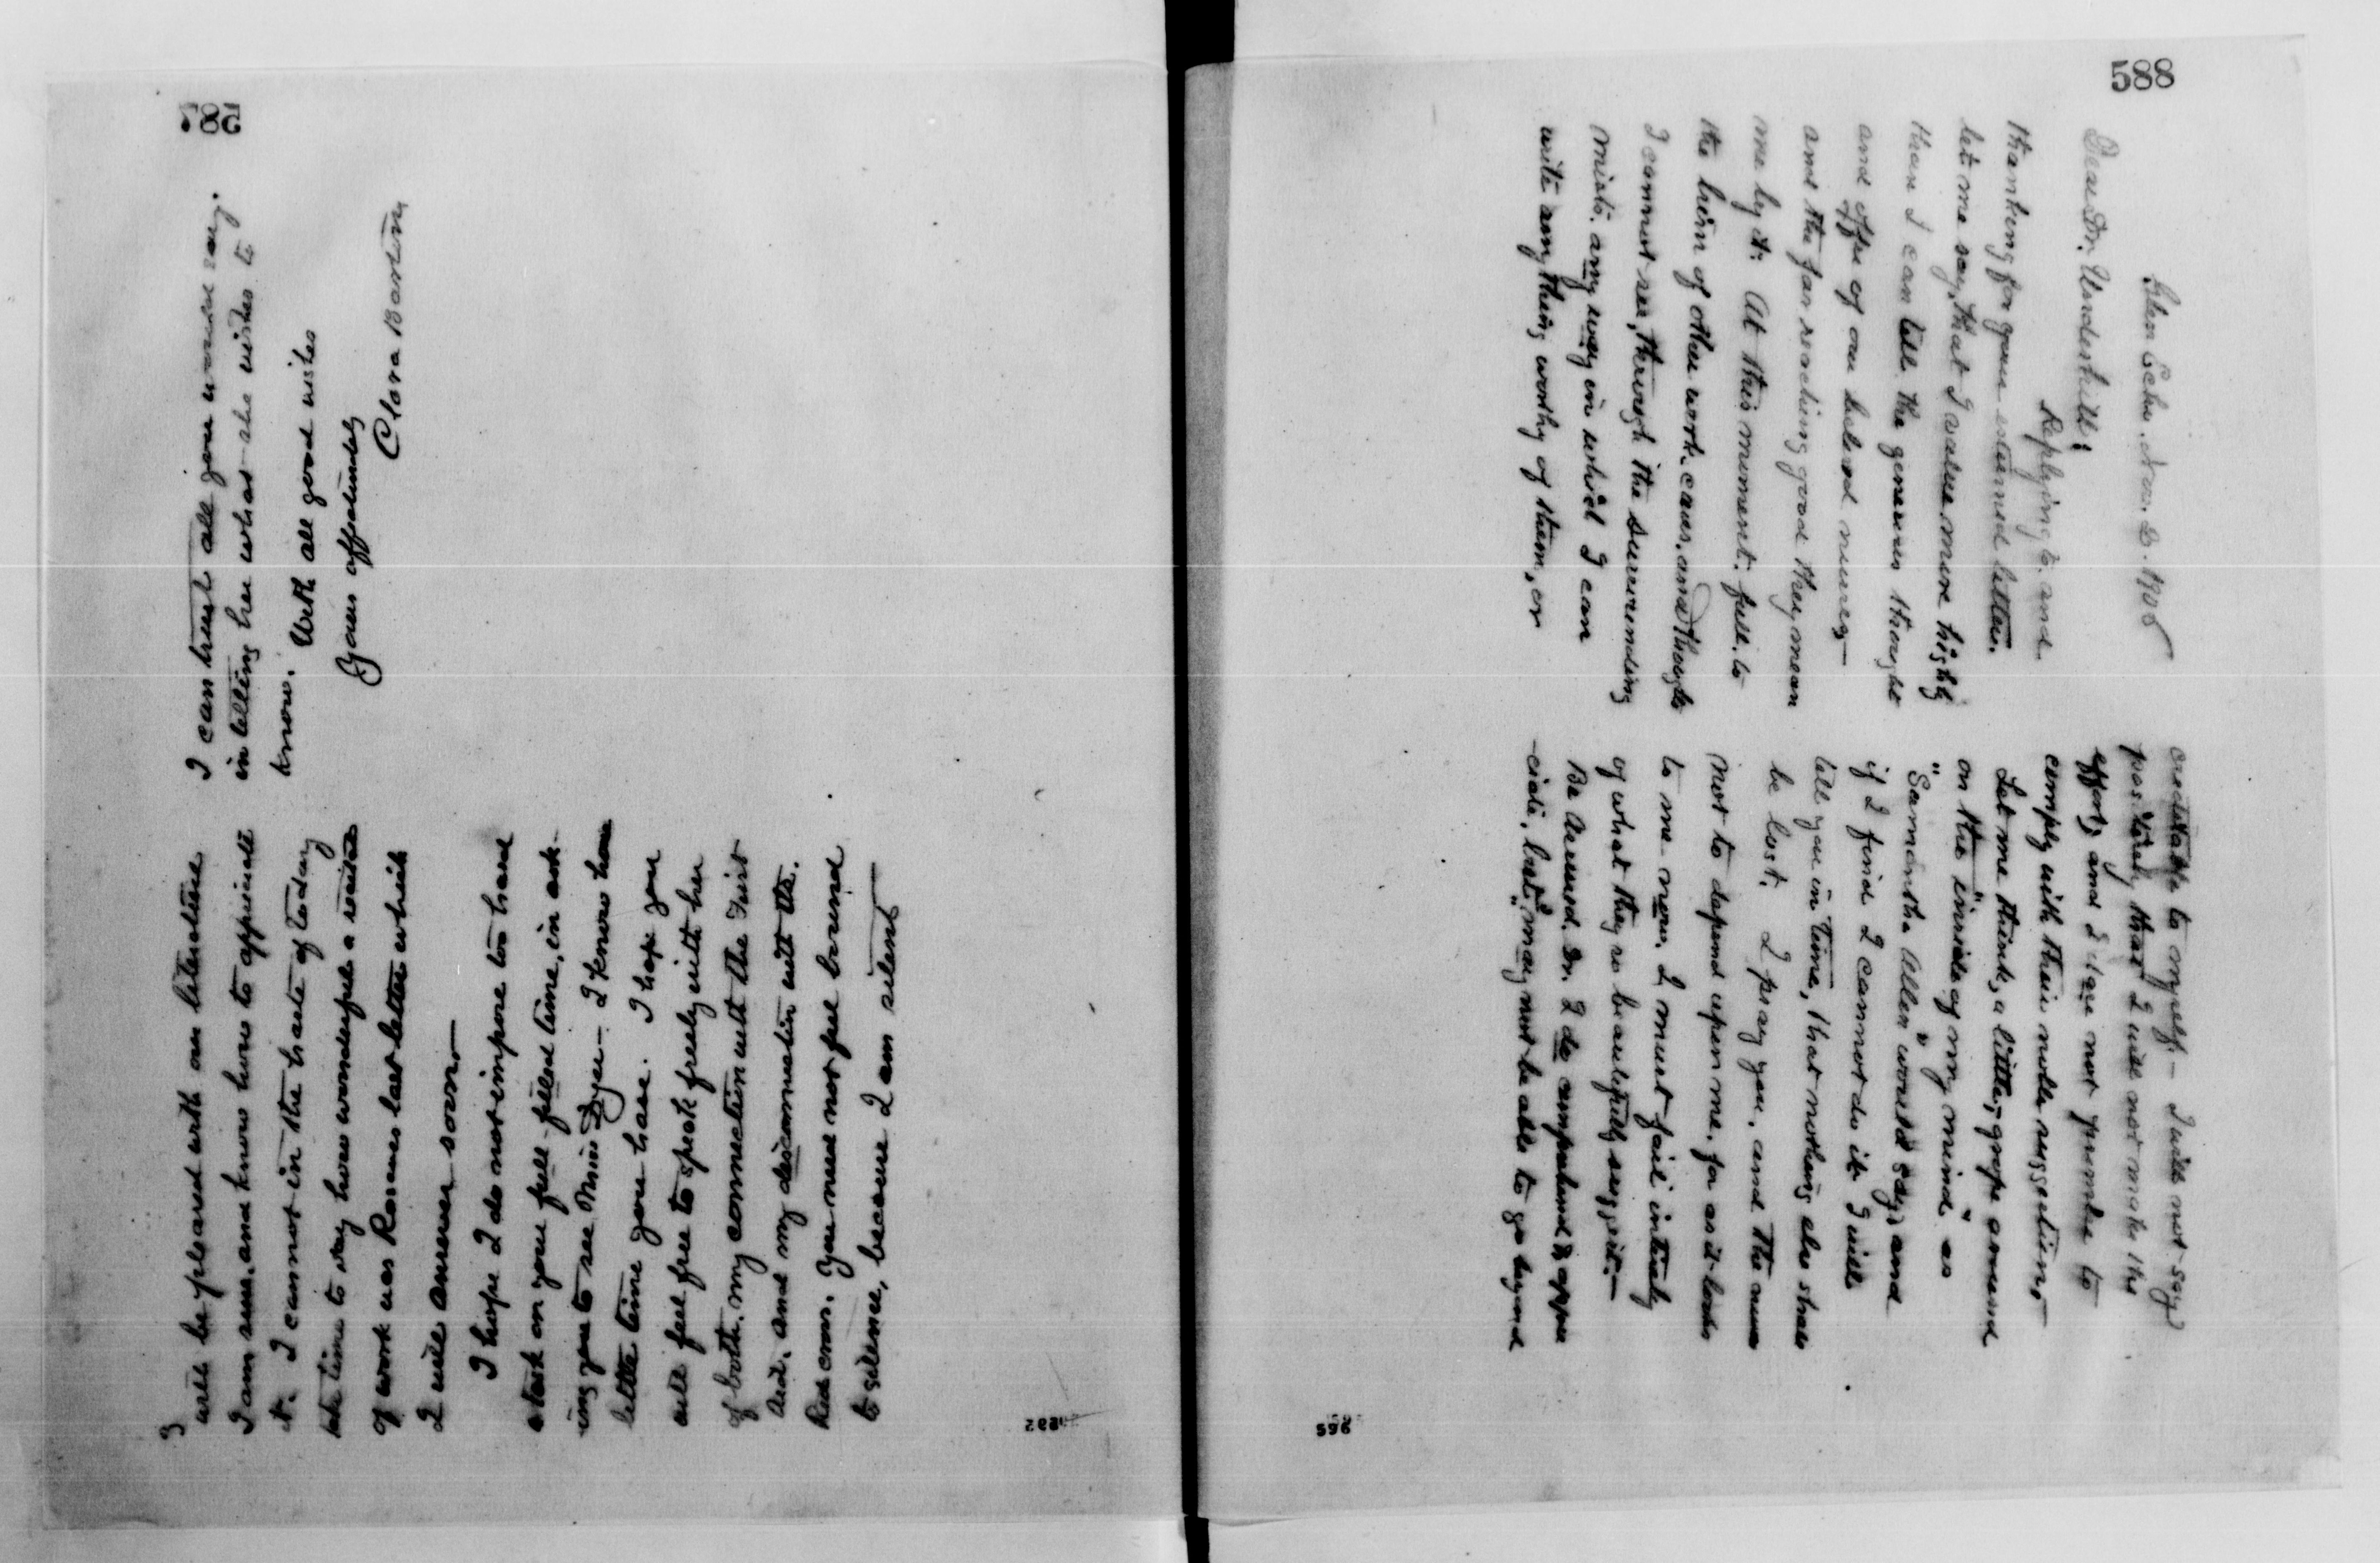 587
3
will be pleased with our literature
I am sure, and know how to appreciate
it. I cannot in the haste of today
take time to say how wonderful a
of work was last letter which
I will answer soon —
I hope I do not impose too hard
a task on your full filled time, in ask-
ing you to see Miss — I know how
little time you have. I hope you
will feel free to speak freely with her
of both, my connection with the First
Aid, and my disconnection with the
Red cross. You need not feel bound
to silence, because I am silent —
I can trust all you would say.
in telling her what she wishes to
know.
With all good wishes
Yours affectionately
Clara Barton
588
Glen Echo,
Dear Dr. Underhill:
Replying to, and
thanking for your esteemed letter.
let me say, that I value more highly
than I can tell the generous thought
and offer of our beloved
and the far reaching good they mean
me by it. At this moment, full, to
the brim of other work, cares, and thoughts
I cannot see, through the surrounding
mists, any way in which I can
write anything worthy of them, or
creditable to myself. — I will not say
positively that I will not make the
effort, and I dare not promise to
comply with their noble suggestion, —
Let me think, a little, — grope around
on the "inside of my mind" as
"Samantha Allen" would say, and
if I find I cannot do it I will
tell you in time, that nothing else shall
be lost. I pray you, and the
not to depend upon me, for as it looks
to me now, I must fail entirely
of what they so beautifully suggest. —
Be assured, Dr. I do comprehend & appre
-ciate, but, may not be able to go beyond
592
596